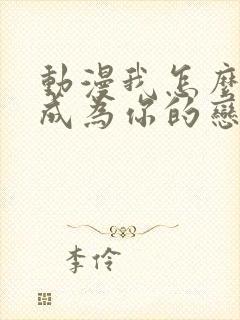 動漫我怎麼
成為你的戀
李伶